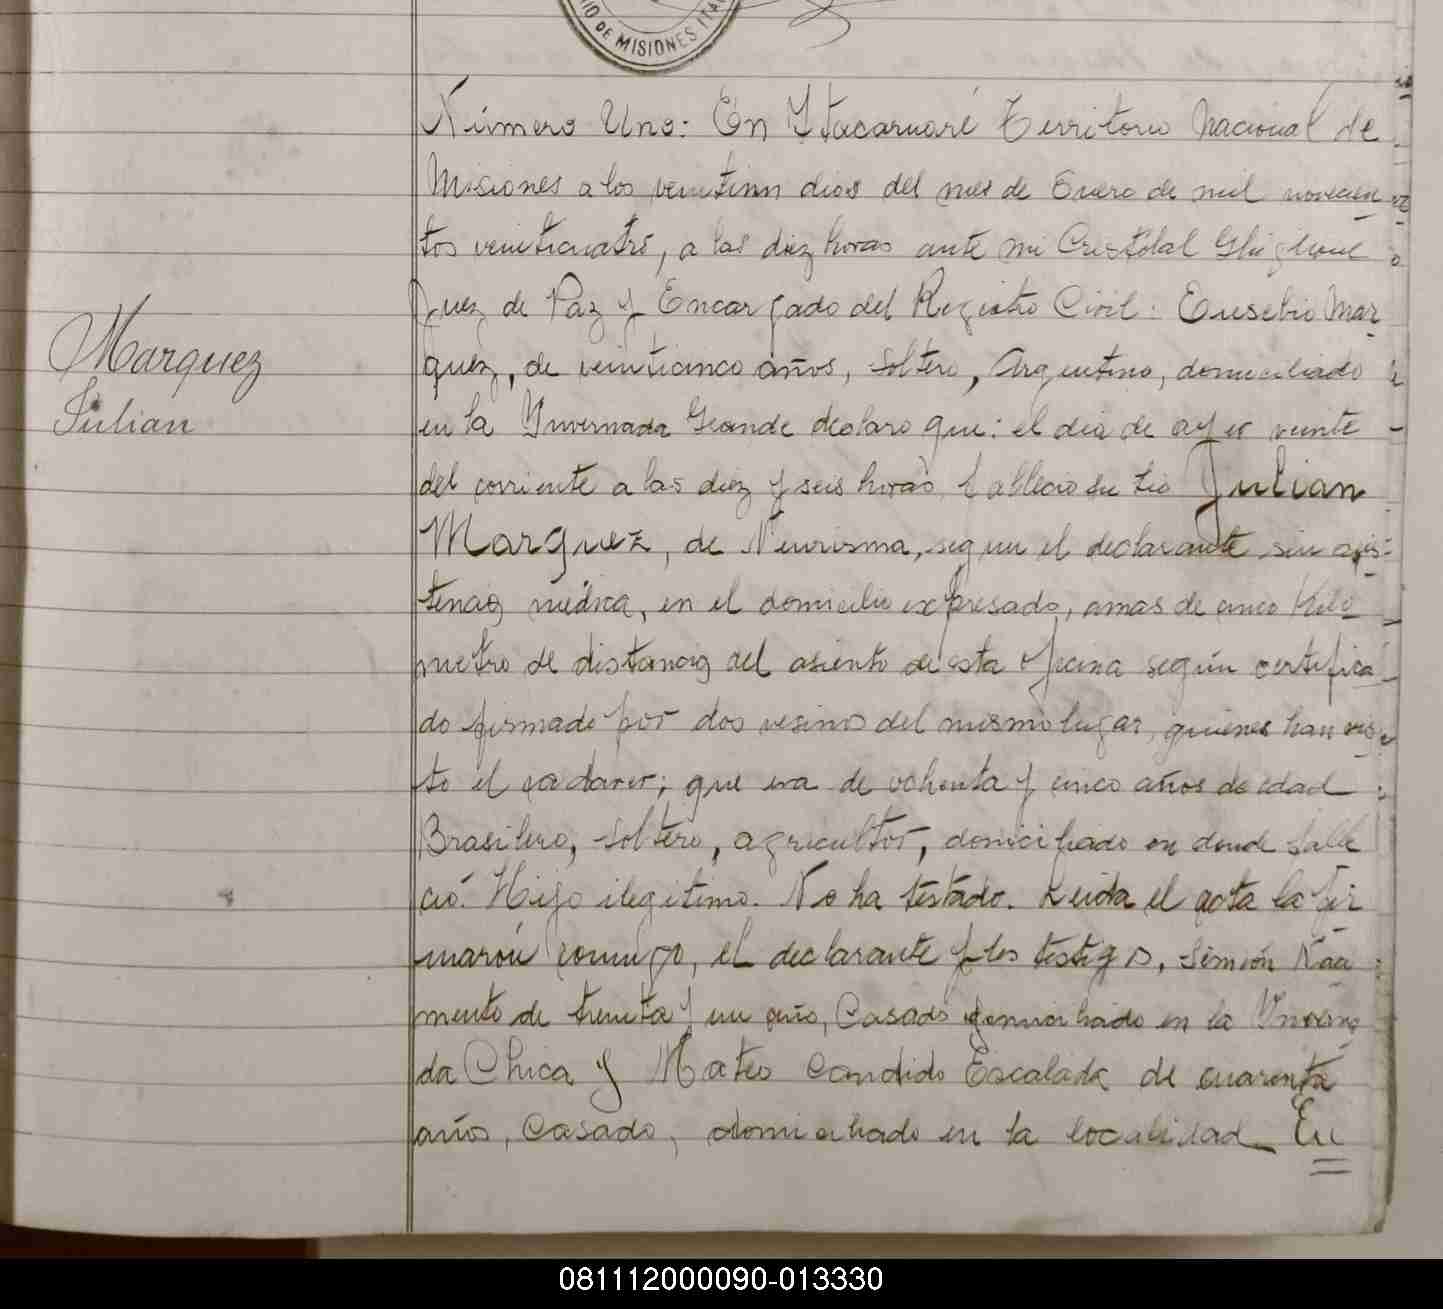 RIO DE MISIONES ITA
Número Uno: En Ytacaruaré Territorio Nacional de
Misiones a los veintiun dias del mes de Enero de mil novecien
tos veinticuatro, a las diez horas ante mi Cristobal Ghiglione
Juez de Paz y Encargado del Registro Civil: Eusebio Mar
quez, de veinticinco años, soltero, Argentino, domiciliado
en la Invernada Grande declaro que: el dia de ayer veinte
del corriente a las diez y seis horas, fallecio su tio Julian
Marquez, de Neurisma, segun el declarante sin asis-
tencia médica, en el domicilio expresado, a mas de cinco Kilo
metro de distancia del asiento de esta oficina según certifica
do firmado por dos vesinos del mismo lugar, quienes han vis
to el cadaver; que era de ochenta y cinco años de edad
Brasilero, soltero, agricultor, domiciliado en donde falle
ció. Hijo ilegitimo. No ha testado. Leida el acta la fir
marón conmigo, el declarante y los testigos, Simión
mento de treinta y un año, Casado domiciliado en la Inverna
da Chica y Mateo Candido Escalada de cuarenta
años, Casado, domiciliado en la localidad En
Marquez
Julian
081112000090-013330